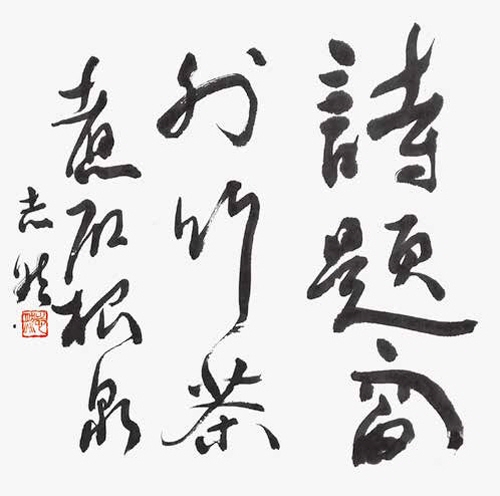 詩題窗
外竹茶
煮石根泉
志